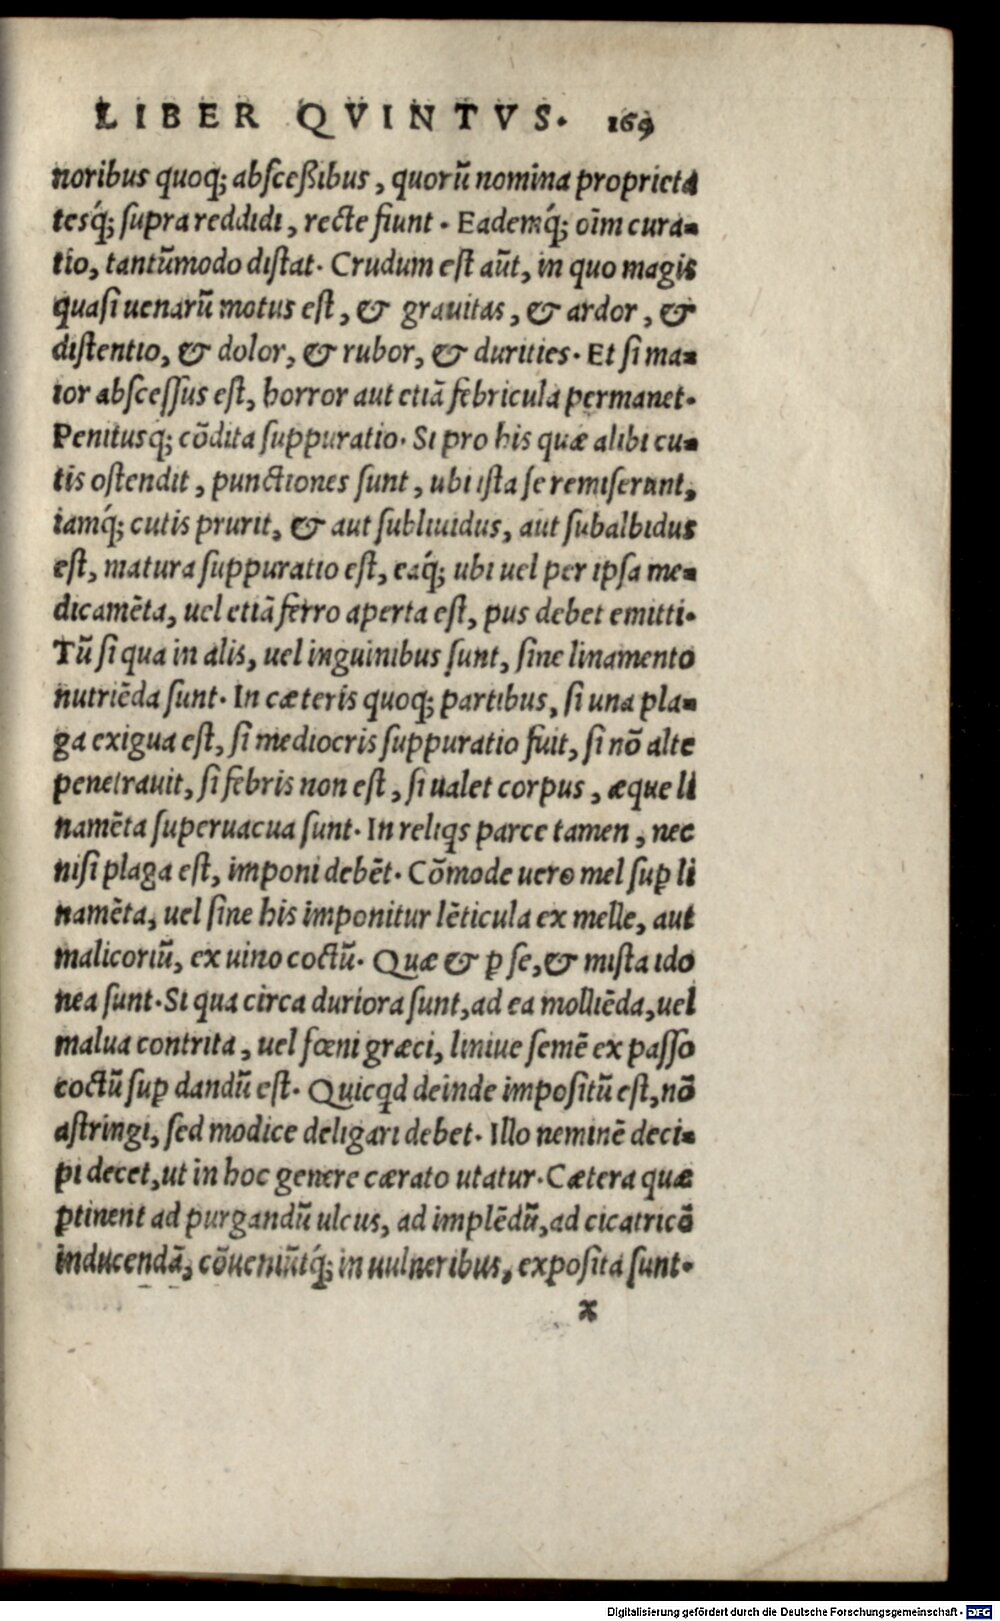 LIBER QVINTVS. 169
noribus quoq; abſceßibus, quorũ nomina proprieta
tesq́; ſupra reddidi, recte fiunt. Eademq́; oĩm cura-
tio, tantũmodo diſtat. Crudum eſt aũt, in quo magis
quaſi uenarũ motus eſt, & grauitas, & ardor, &
diſtentio, & dolor, & rubor, & durities. Et ſi ma-
ior abſceſſus eſt, horror aut etiã febricula permanet.
Penitusq; cõdita ſuppuratio. Si pro his quæ alibi cu-
tis oſtendit, punctiones ſunt, ubi iſta ſe remiſerunt,
iamq́; cutis prurit, & aut ſubliuidus, aut ſubalbidus
eſt, matura ſuppuratio eſt, eaq́; ubi uel per ipſa me-
dicamẽta, uel etiã ferro aperta eſt, pus debet emitti.
Tũ ſi qua in alis, uel inguinibus ſunt, ſine linamento
nutriẽda ſunt. In cæteris quoq; partibus, ſi una pla-
ga exigua eſt, ſi mediocris ſuppuratio fuit, ſi nõ alte
penetrauit, ſi febris non eſt, ſi ualet corpus, æque li
namẽta ſuperuacua ſunt. In reliqs parce tamen, nec
niſi plaga eſt, imponi debẽt. Cõmode uero mel ſuꝑ li
namẽta, uel ſine his imponitur lẽticula ex melle, aut
malicoriũ, ex uino coctũ. Quæ & ꝑ ſe, & miſta ido
nea ſunt. Si qua circa duriora ſunt, ad ea molliẽda, uel
malua contrita, uel fœni græci, liniue ſemẽ ex paſſo
coctũ ſuꝑ dandũ eſt. Quicqd deinde impoſitũ eſt, nõ
aſtringi, ſed modice deligari debet. Illo neminẽ deci-
pi decet, ut in hoc genere cærato utatur. Cætera quæ
ꝑtinent ad purgandũ ulcus, ad implẽdũ, ad cicatricẽ
inducendã, cõueniũtq́; in uulneribus, expoſita ſunt.
x
Digitalisierung gefördert durch die Deutsche Forschungsgemeinschaft - DFG